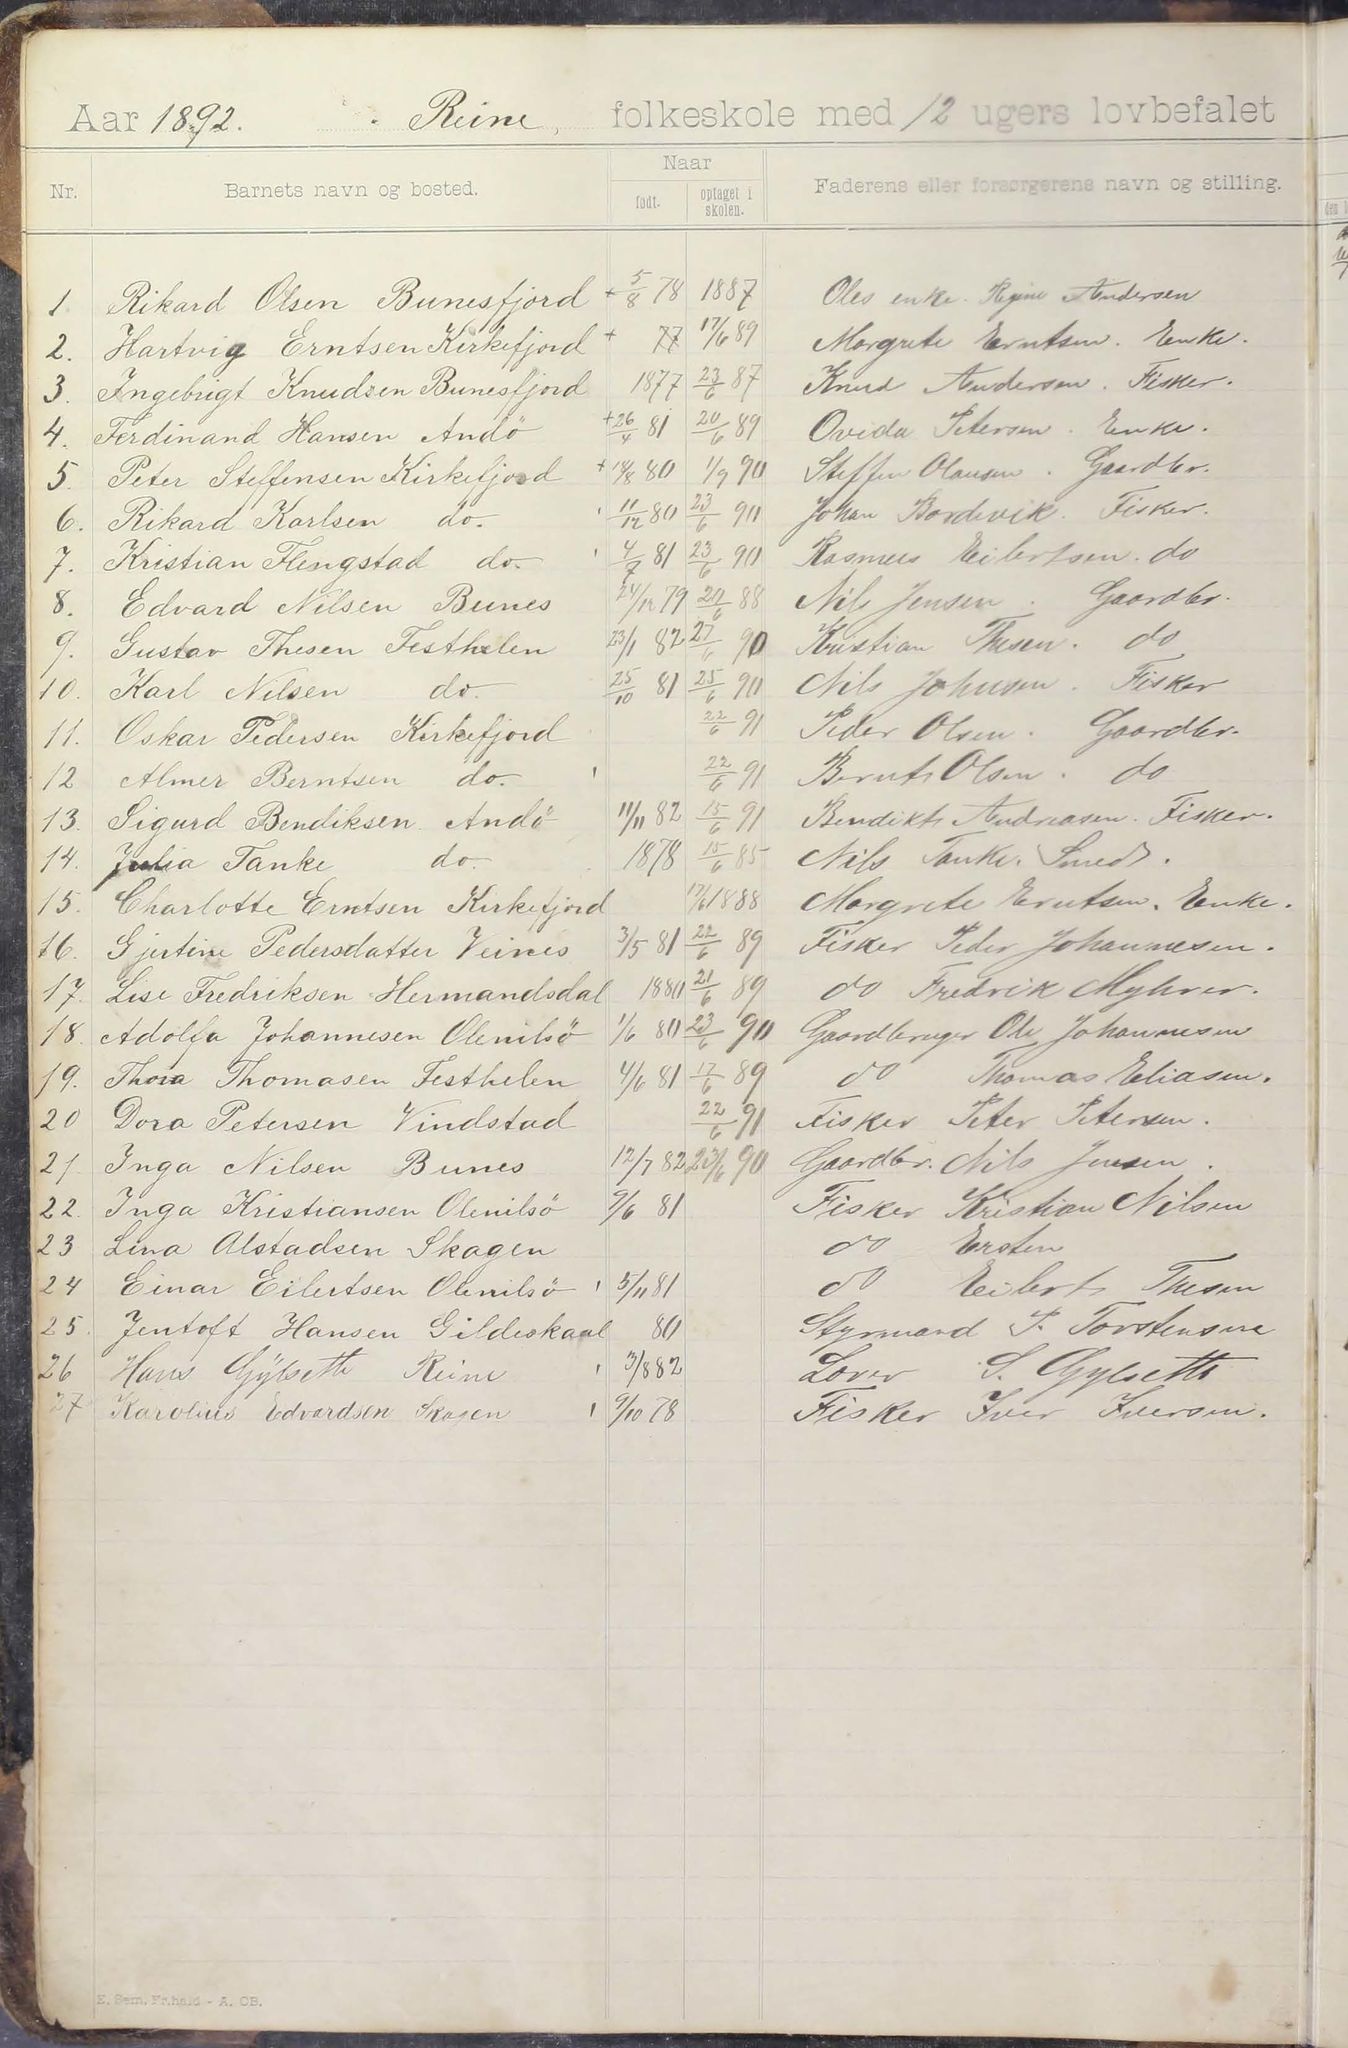 Aar 1892. Reine folkeskole med 12 ugers lovbefalet
Nr. Barnets navn og bosted. Naar Faderens eller forsørgerens navn og stilling.
født. optaget i skolen.
1 Rikard Olsen Bunesfjord + 5/8 78 1887 Oles enke Regine Andersen
2. Hartvig Erntsen Kirkefjord + 77 17/6 89 Margrete Erntsen. Enke.
3. Ingebrigt Knudsen Bunesfjord 1877 23/6 87 Knud Andersen. Fisker.
4. Ferdinand Hansen Andö + 26/4 81 20/6 89 Ovida Petersen. Enke.
5. Peter Steffensen Kirkefjord + 18/8 80 1/9 90 Steffen Olausen. Gaardbr.
6. Rikard Karlsen do. 11/12 80 23/6 90 Johan Bordevik. Fisker.
7. Kristian Flengstad do. 4/7 81 23/6 90 Rasmus Eilertsen. do
8. Edvard Nilsen Bunes 24/12 79 20/6 88 Nils Jensen. Gaardbr.
9. Gustav Thesen Festhelen 23/1 82 27/6 90 Kristian Thesen. do
10. Karl Nilsen do. 25/10 81 25/6 90 Nils Johnsen. Fisker
11. Oskar Pedersen Kirkefjord 22/6 91 Peder Olsen. Gaardbr.
12 Almer Berntsen do. 22/6 91 Bernt Olsen. do
13. Sigurd Bendiksen Andö 11/11 82 15/6 91 Bendikt Andreasen. Fisker.
14. Julia Tanke do. 1878 15/6 85 Nils Tanke. Smed.
15. Charlotte Erntsen Kirkefjord 17/6 1888 Margrete Erntsen. Enke.
16. Gjertine Pedersdatter Veines 3/5 81 22/6 89 Fisker Peder Johannesen.
17. Lise Fredriksen Hermandsdal 1880 21/6 89 do Fredrik Myhrer.
18. Adolfa Johannesen Olenilsö 1/6 80 23/6 90 Gaardbruger Ole Johannesen
19. Thora Thomasen Festhelen 4/6 81 17/6 89 do Thomas Eliasen.
20 Dora Petersen Vindstad 22/6 91 Fisker Peter Petersen.
21. Inga Nilsen Bunes 12/7 82 23/6 90 Gaardbr. Nils Jensen.
22. Inga Kristiansen Olenilsö 9/6 81 Fisker Kristian Nilsen
23 Lina Alstadsen Skagen do Ersten
24 Einar Eilertsen Olenilsö 5/11 81 do Eilert Thesen
25. Jentoft Hansen Gildeskaal 80 Styrmand P. Torstensen
26 Hans Gÿlseth Reine 3/8 82 S. Gylseth
27 Karolius Edvardsen Skagen 9/10 78 Fisker Iver Iversen.
E. Sem. Fr.hald - A. CB.